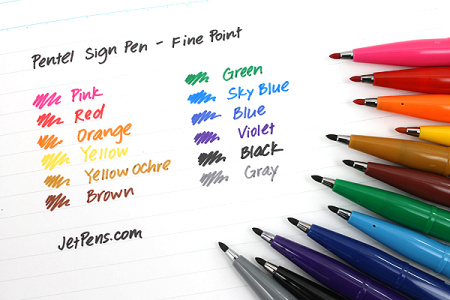 Pentel Sign Pen - Fine Point
Pink
Red
Orange
Yellow
Yellow Ochre
Brown
Green
Sky Blue
Blue
Violet
Black
Gray
JetPens.com